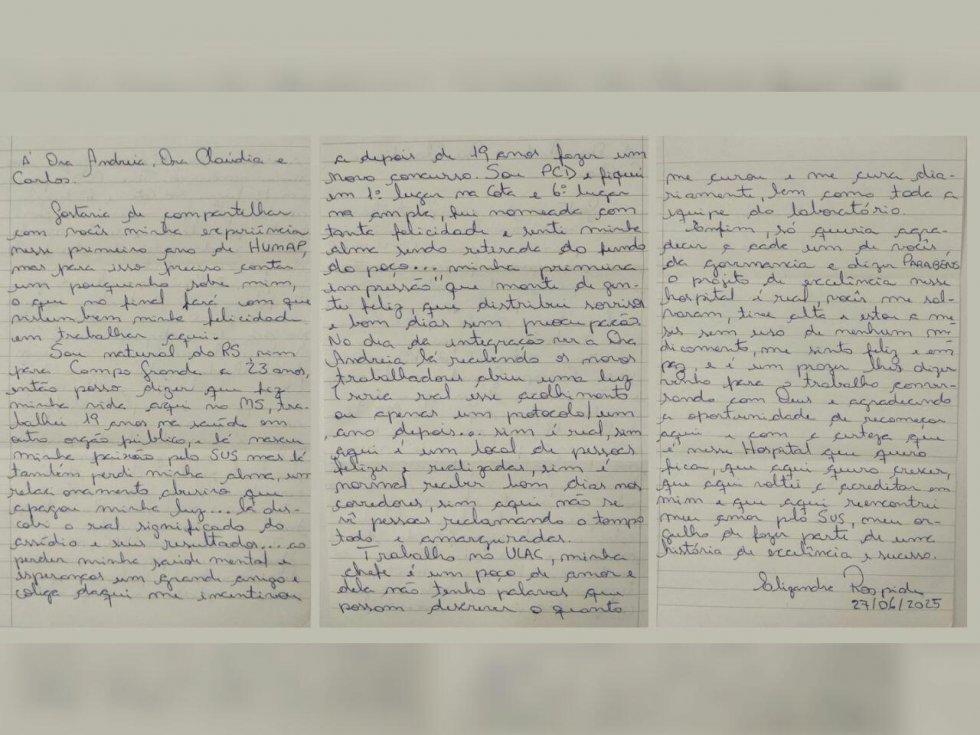 À Dra Andreia, Dra Claúdia e
Carlos.
Gostaria de compartilhar
com vocês minha experiência
nesse primeiro ano de HUMAP,
mas para isso preciso contar
um pouquinho sobre mim,
o que no final fará com que
vislumbrem minha felicidade
em trabalhar aqui.
Sou natural do RS, vim
para Campo Grande a 23 anos,
então posso dizer que fiz
minha vida aqui no MS, tra-
balhei 19 anos na saúde em
outro orgão público, e lá nasceu
minha paixão pelo SUS mas lá
também perdi minha alma, um
relacionamento abusivo que
apagou minha luz... lá des-
cobri o real significado do
assédio e seus resultados... ao
perder minha saúde mental e
esperanças um grande amigo e
colega daqui me incentivou
a depois de 19 anos fazer um
novo concurso. Sou PCD e fiquei
em 1º lugar na cota e 6º lugar
na ampla, fui nomeada com
tanta felicidade e senti minha
alma sendo retirada do fundo
do poço... minha primeira
impressão "que monte de gen-
te feliz, que distribui sorrisos
e bom dias sem preocupação.
No dia da integração ver a Dra
Andreia lá recebendo os novos
trabalhadores abriu uma luz
seria real esse acolhimento
ou apenas um protocolo/um
ano depois... sim é real, sim
aqui é um local de pessoas
felizes e realizadas, sim é
normal receber bom dias nos
corredores, sim aqui não se
vê pessoas reclamando o tempo
todo e amarguradas.
Trabalho no ULAC, minha
chefe é um poço de amor e
dela não tenho palavras que
possam descrever o quanto
me curou e me cura dia-
riamente, bem como toda a
equipe do laboratório.
Enfim, só queria agra-
decer a cada um de vocês,
da governancia e dizer PARABÉNS
o projeto de excelência nesse
hospital é real, vocês me sal-
varam, tive alta e estou a me-
ses sem uso de nenhum me-
dicamento, me sinto feliz e em
paz, e é um prazer lhes dizer
venho para o trabalho conver-
sando com Deus e agradecendo
a oportunidade de recomeçar
aqui e com a certeza que
é nesse Hospital que quero
ficar, que aqui quero crescer,
que aqui voltei a acreditar em
mim e que aqui reencontrei
meu amor pelo SUS, meu or-
gulho de fazer parte de uma
história de excelência e sucesso.
27/06/2025